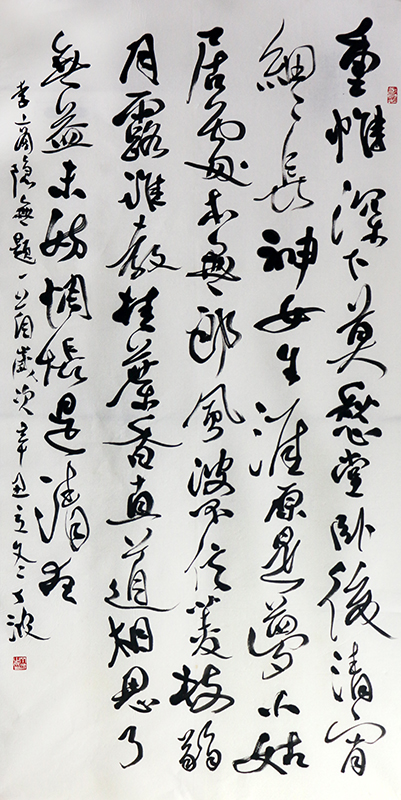 重帷深下莫愁堂卧後清宵
細〻長神女生涯原是夢小姑
居處本無郎風波不信菱枝弱
月露誰教桂葉香直道相思了
無益未妨惆悵是清狂
李商隐無題一首歲次辛丑立冬波